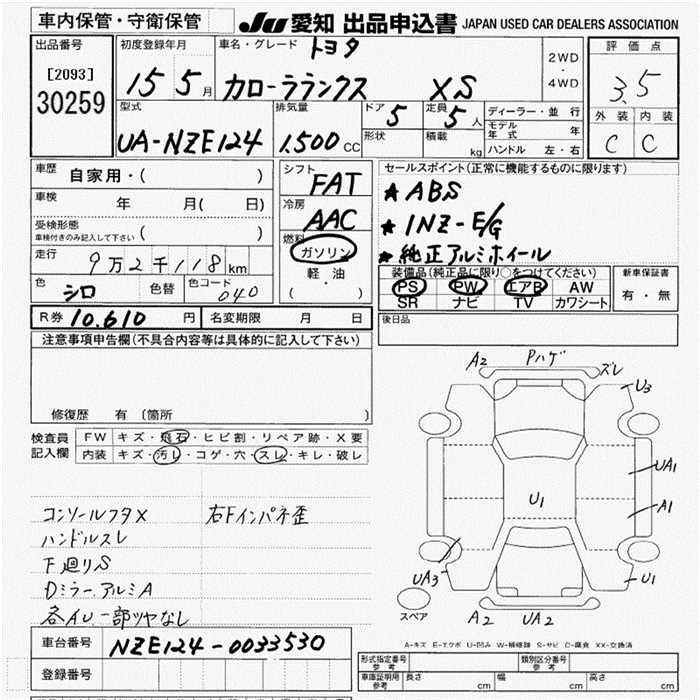 車内保管・守衛保管
JU 愛知 出品申込書 JAPAN USED CAR DEALERS ASSOCIATION
出品番号
[2093]
30259
初度登録年月
15 5月
車名・グレード トヨタ
カローラランクス XS
2WD
・
4WD
評価点
3.5
外装 内装
C C
型式
UA-NZE124
排気量
1.500 CC
ドア 5
形状
定員 5人
積載 kg
ディーラー・並行
モデル年式 年
ハンドル 左・右
車歴 自家用・( )
車検 年 月( 日)
受検形態
車検付きのみ記入して下さい ( )
走行 9万2千118km
色 シロ 色替 色コード 040
シフト FAT
冷房 AAC
燃料 ガソリン
軽・油
( ・ )
セールスポイント(正常に機能するものに限ります)
★ABS
★1NZ-E/G
★純正アルミホイール
装備品(純正品に限り○をつけてください)
PS PW エアB AW
SR ナビ TV カワシート
新車保証書
有・無
R券 10.610 円 名変期限 月 日
後日品
注意事項申告欄(不具合内容等は具体的に記入して下さい)
修復歴 有〔箇所 〕
検査員記入欄
FW キズ・飛石・ヒビ割・リペア跡・X要
内装 キズ・汚レ・コゲ・穴・スレ・キレ・破レ
コンソールフタX 右Fインパネ歪
ハンドルスレ
F廻りS
Dミラー、アルミA
各AU一部ツヤなし
A2 Pハゲ ズレ
U3
UA1
U1
A1
UA3
U1
A2 UA2
スペア
A-キズ E-エクボ U-凹み W-補修跡 S-サビ C-腐食 XX-交換済
車台番号 NZE124-0033530
登録番号
形式指定番号 参考
類別区分番号 参考
車庫証明用 参考 長さ cm 幅 cm 高さ cm